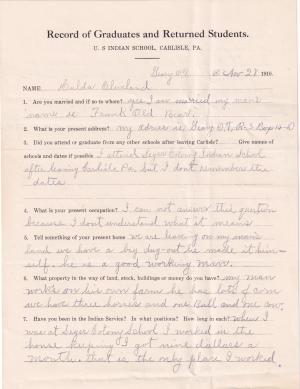 Record of Graduates and Returned Students.
U. S INDIAN SCHOOL, CARLISLE, PA.
Geary Nov 27 1910.
NAME: Hulda Cleveland
1. Are you married and if so to whom? yes I am married my man's
name is Frank Old Bear.
2. What is your present address? my adress is Geary O.T. R. 3 Box
3. Did you attend or graduate from any other schools after leaving Carlisle? Give names of
schools and dates if possible I attend Seger Colony Indian School
after leaving Carlisle Pa but I dont remember the
dates.
4. What is your present occupation? I can not answer this question
because I dont understand what it means.
5. Tell something of your present home we are leaving on my mans
land we have a big dug-out he made it him-
self. he is a good working man.
6. What property in the way of land, stock, buildings or money do you have? my man
works on his own farm he has lots of corn
we have three horses and one and one cow.
7. Have you been in the Indian Service? In what positions? How long in each? When I
was at Seger Colony School I worked in the
house keeping I got nine dallars a
month. that is the only place I worked